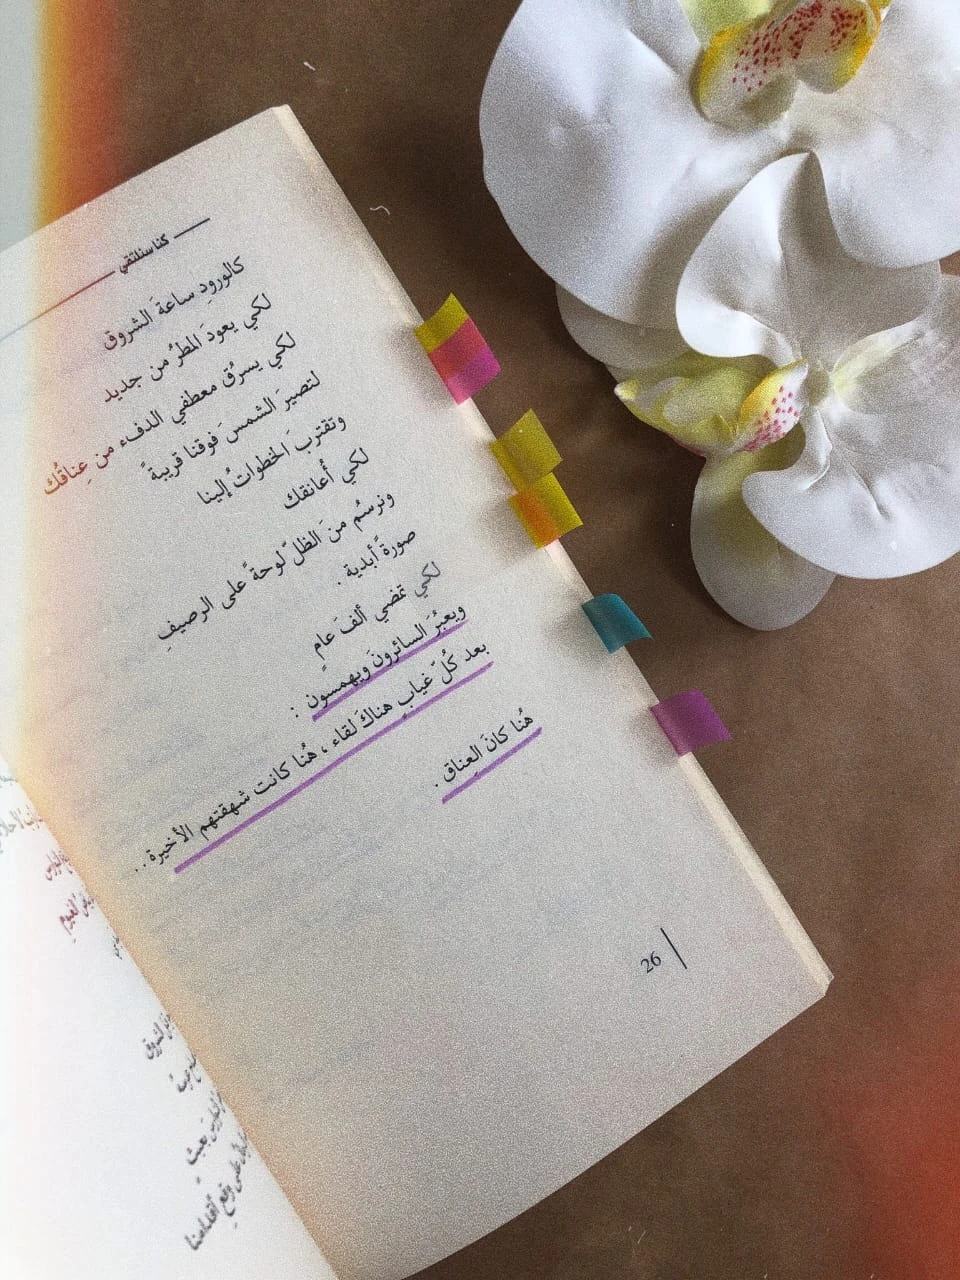 كنا سنلتقي
كالورودِ ساعةَ الشروق
لكي يعودَ المطرُ من جديد
لكي يسرُق معطفي الدفء من عِناقُك
لتصيرَ الشمسَ فوقنا قريبةً
وتقتربَ الخطواتُ إلينا
لكي أُعانقك
ونرسُم منَ الظلّ لوحةً على الرصيفِ
صورةً أبدية .
لكي تمضي ألفَ عامٍ
ويعبُرَ السائرونَ ويهمسون :
بعد كُلّ غيابٍ هناكَ لقاء ، هُنا كانت شهقتهم الأخيرة ..
هُنا كانَ العِناق .
26